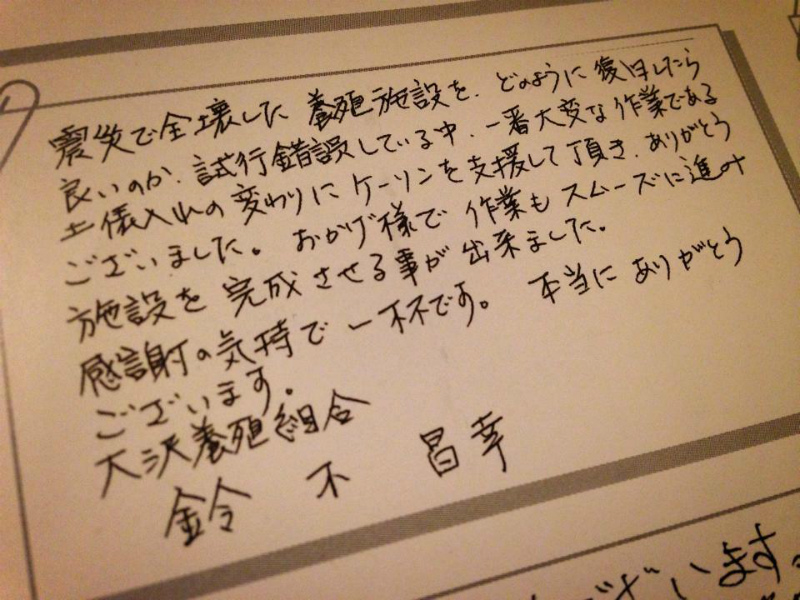 震災で全壊した養殖施設を、どのように復旧したら
良いのか、試行錯誤している中、一番大変な作業である
土俵入れの変わりにケーソンを支援して頂き、ありがとう
ございました。おかげ様で作業もスムーズに進み
施設を完成させる事が出来ました。
感謝の気持で一杯です。本当にありがとう
ございます。
大沢養殖組合
鈴木 昌幸
ございます。